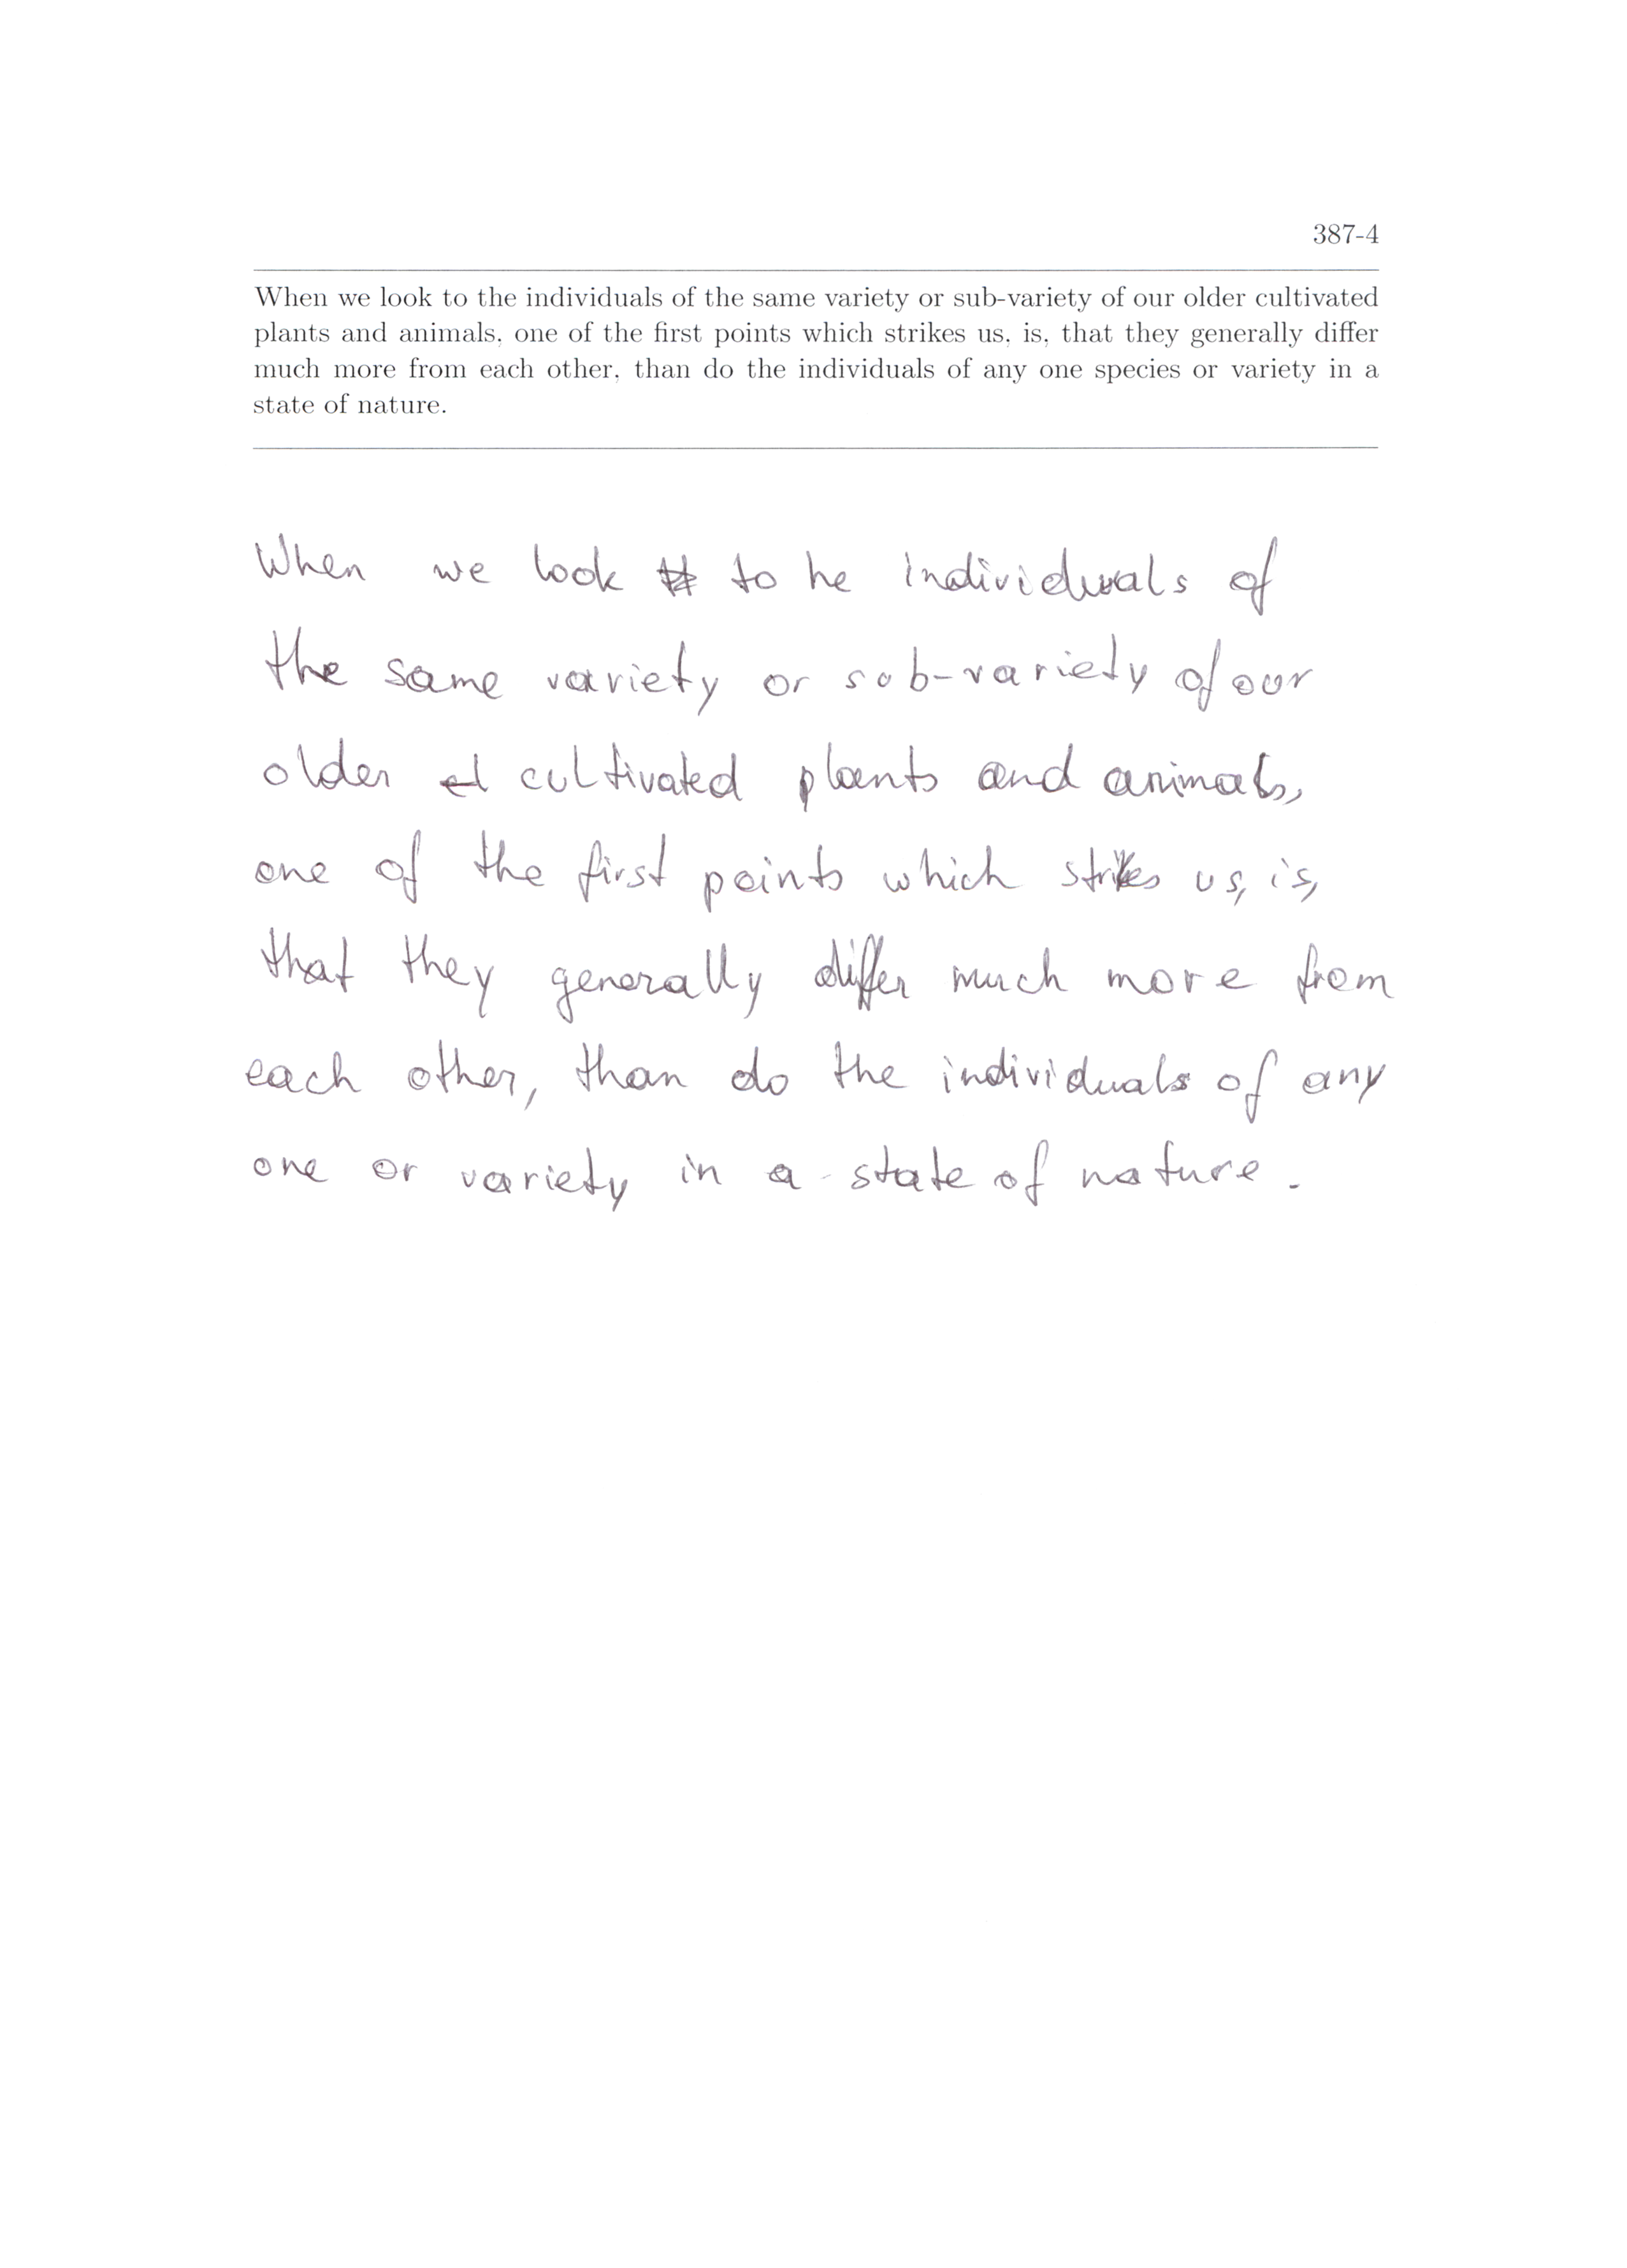 387-4
When we look to the individuals of the same variety or sub-variety of our older cultivated
plants and animals, one of the first points which strikes us, is, that they generally differ
much more from each other, than do the individuals of any one species or variety in a
state of nature.
When we look to he individuals of
the same variety or sub-variety of our
older cultivated plants and animals,
one of the first points which strikes us, is,
that they generally differ much more from
each other, than do the individuals of any
one or variety in a state of nature.